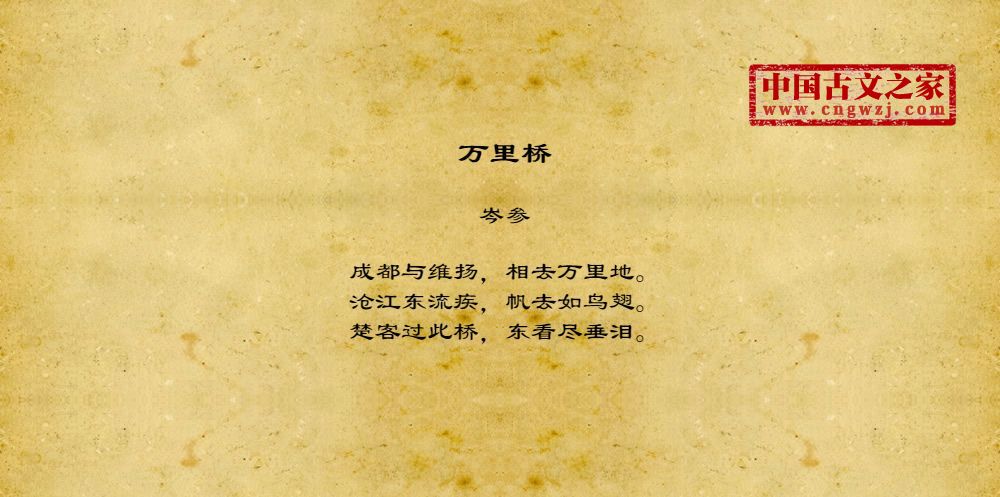 中国古文之家
www.cngwzj.com
万里桥
岑参
成都与维扬，相去万里地。
沧江东流疾，帆去如鸟翅。
楚客过此桥，东看尽垂泪。